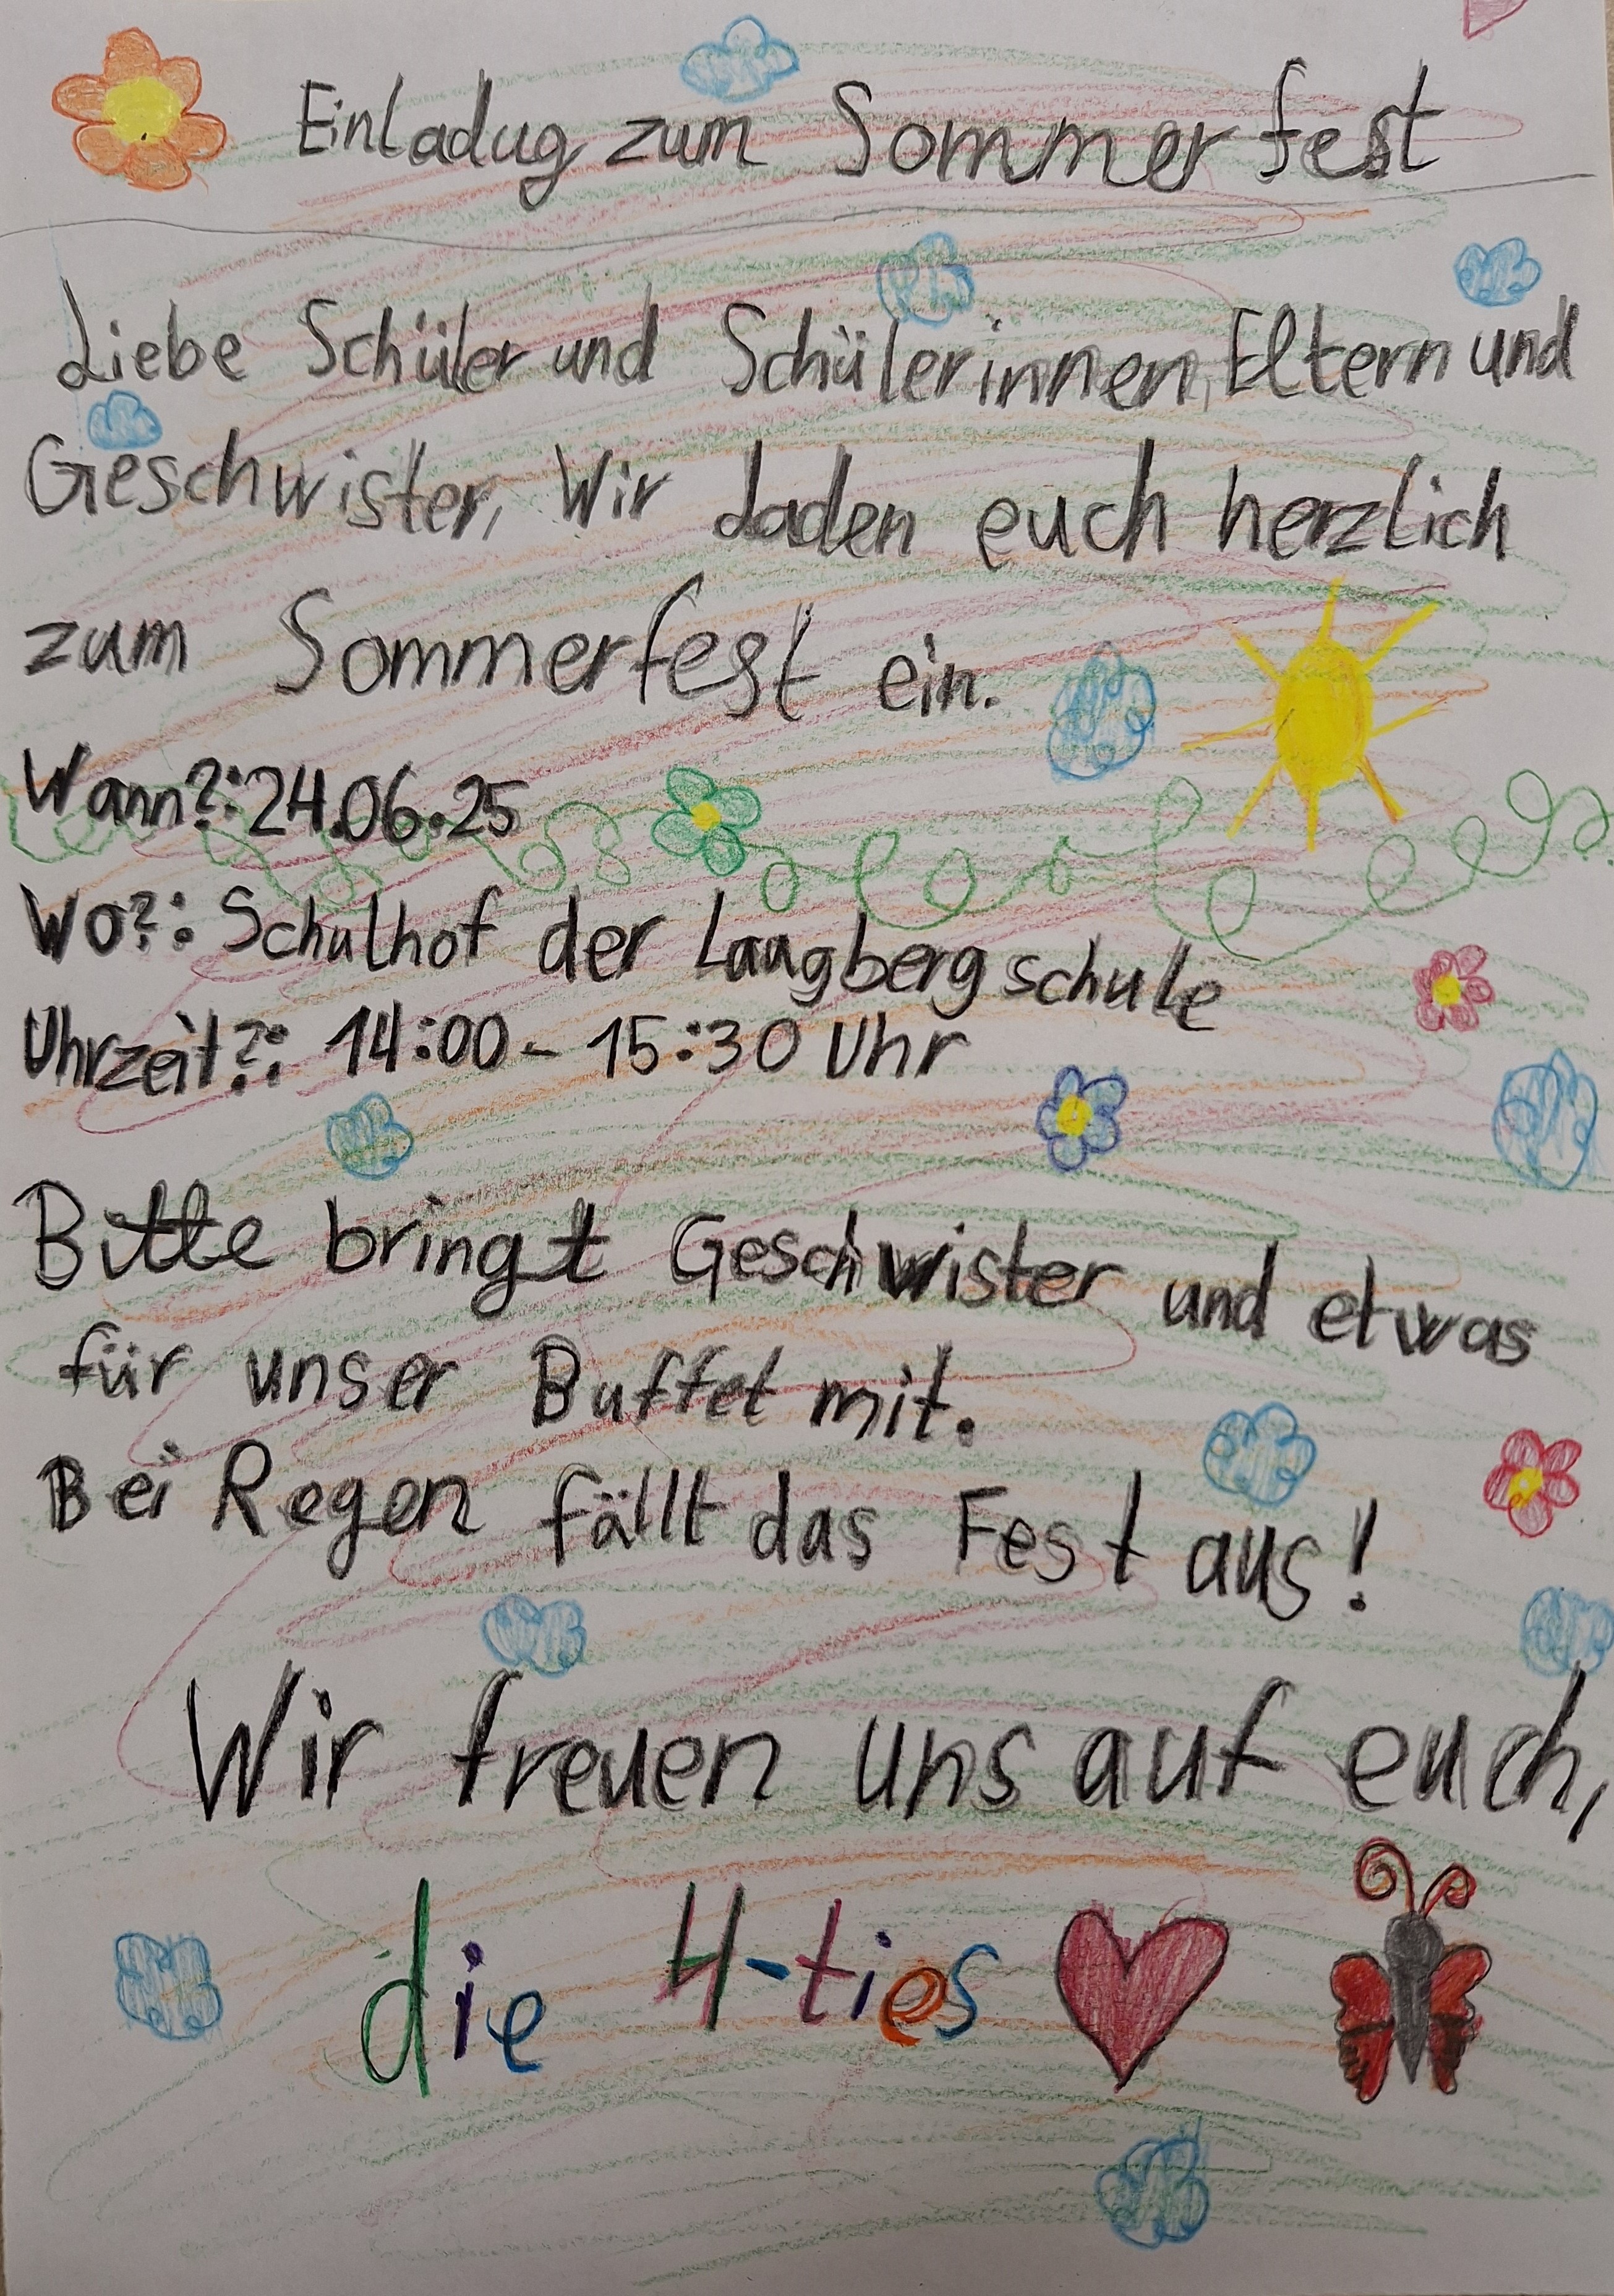 Einladug zum Sommerfest
Liebe Schüler und Schülerinnen, Eltern und
Geschwister, Wir laden euch herzlich
zum Sommerfest ein.
Wann?: 24.06.25
Wo?: Schulhof der Laugbergschule
Uhrzeit?: 14:00 - 15:30 Uhr
Bitte bringt Geschwister und etwas
für unser Buffet mit.
Bei Regen fällt das Fest aus!
Wir freuen uns auf euch,
die 4-ties